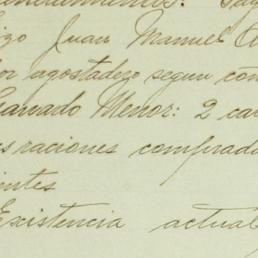 izo Juan Manuel
agostadezo segun con
Ganado Menor: 2 ca
s raciones comprad
intes
Existencia actual